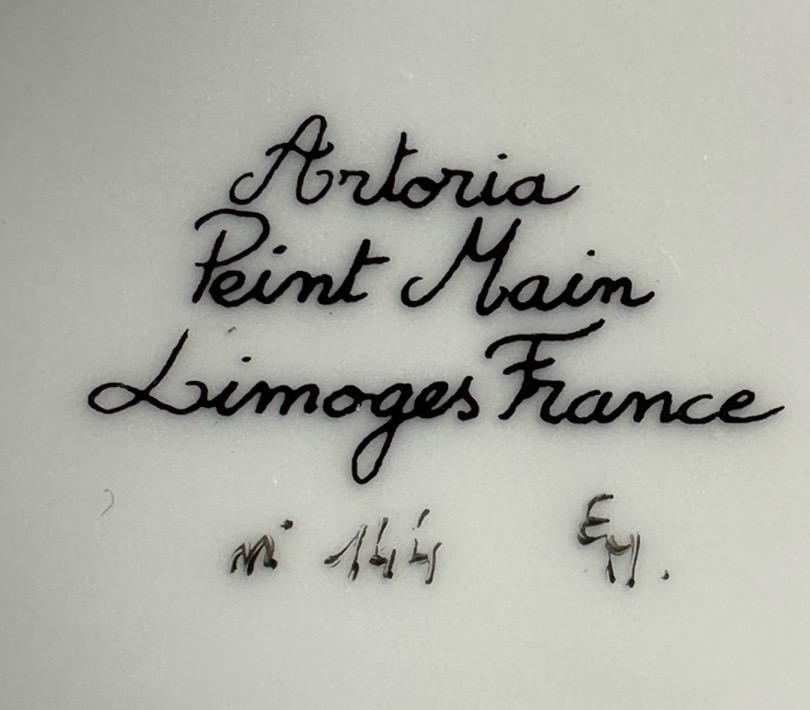 Artoria
Peint Main
Limoges France
n° 144 EH.